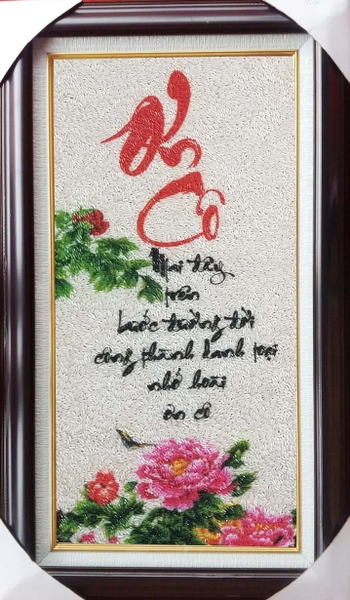 Ơn
Cô
Mai đây
trên
bước đường đời
công thành danh toại
nhớ hoài
ơn cô